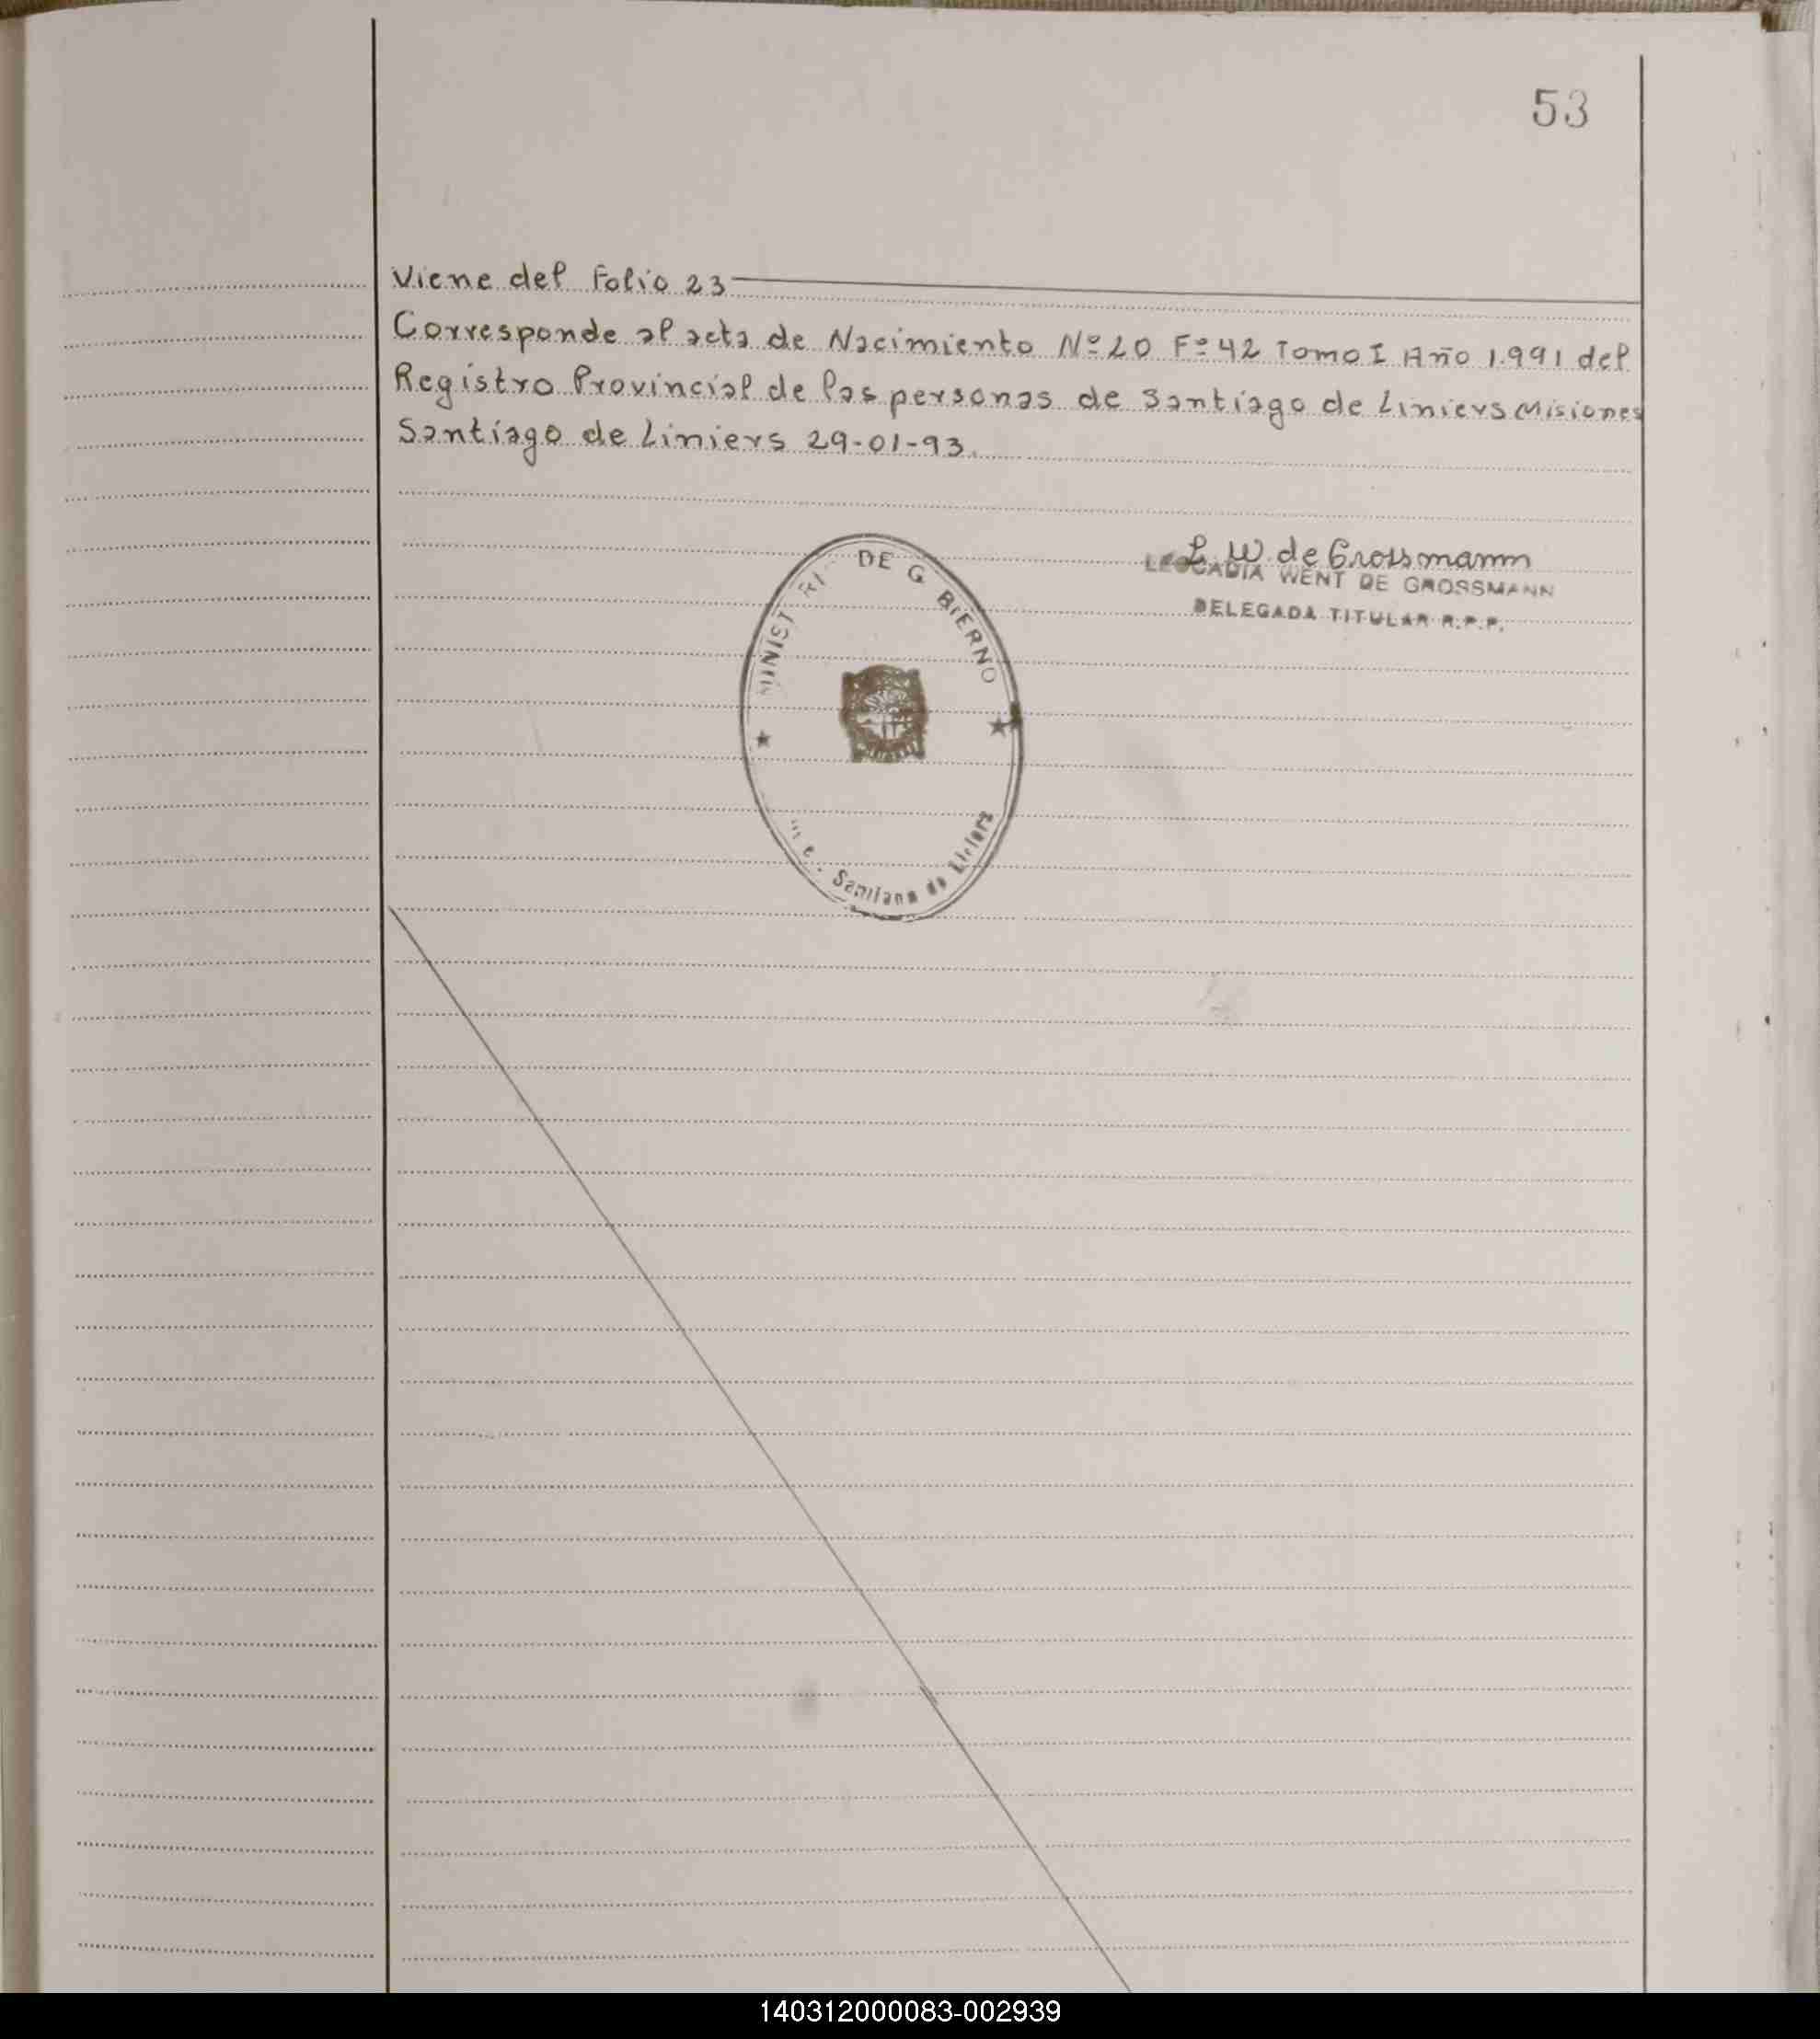 53
Viene del Folio 23
Corresponde al acta de Nacimiento Nº 20 Fº 42 Tomo I Año 1.991 del
Registro Provincial de las personas de Santiago de Liniers Misiones
Santiago de Liniers 29-01-93.
L. W de Grossmann
LEOCADIA WENT DE GROSSMANN
DELEGADA TITULAR R.P.P.
DE G BIERNO
de
140312000083-002939